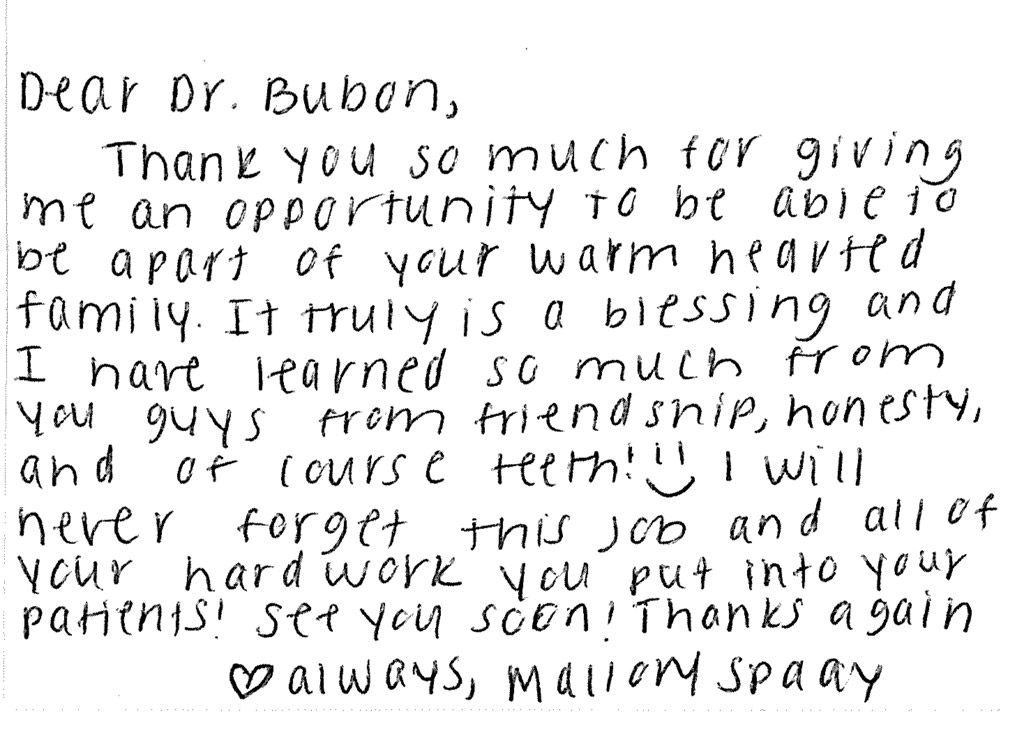 Dear Dr. Bubon,
Thank you so much for giving
me an opportunity to be able to
be apart of your warm hearted
family. It truly is a blessing and
I have learned so much from
you guys from friendship, honesty,
and of course teeth! I will
never forget this job and all of
your hard work you put into your
patients! see you soon! Thanks again
♡ always, Mallory Spaay